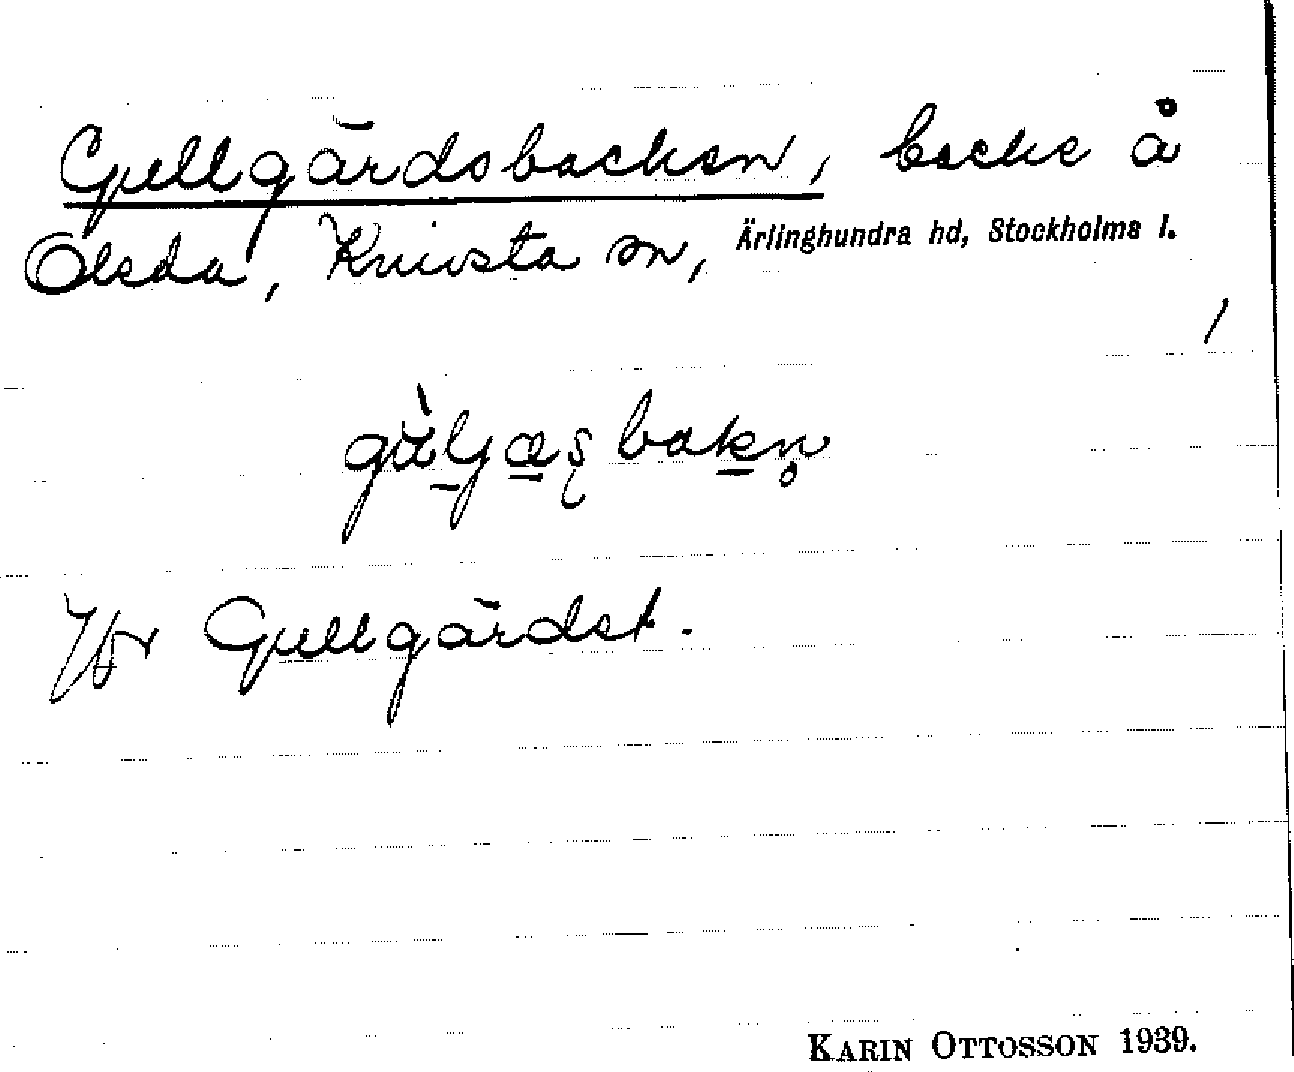 Gullgärdsbacken, backe å
Olsda, Knivsta sn, Ärlinghundra hd, Stockholms l.
/
Jfr Gullgärdet.
KARIN OTTOSSON 1939.